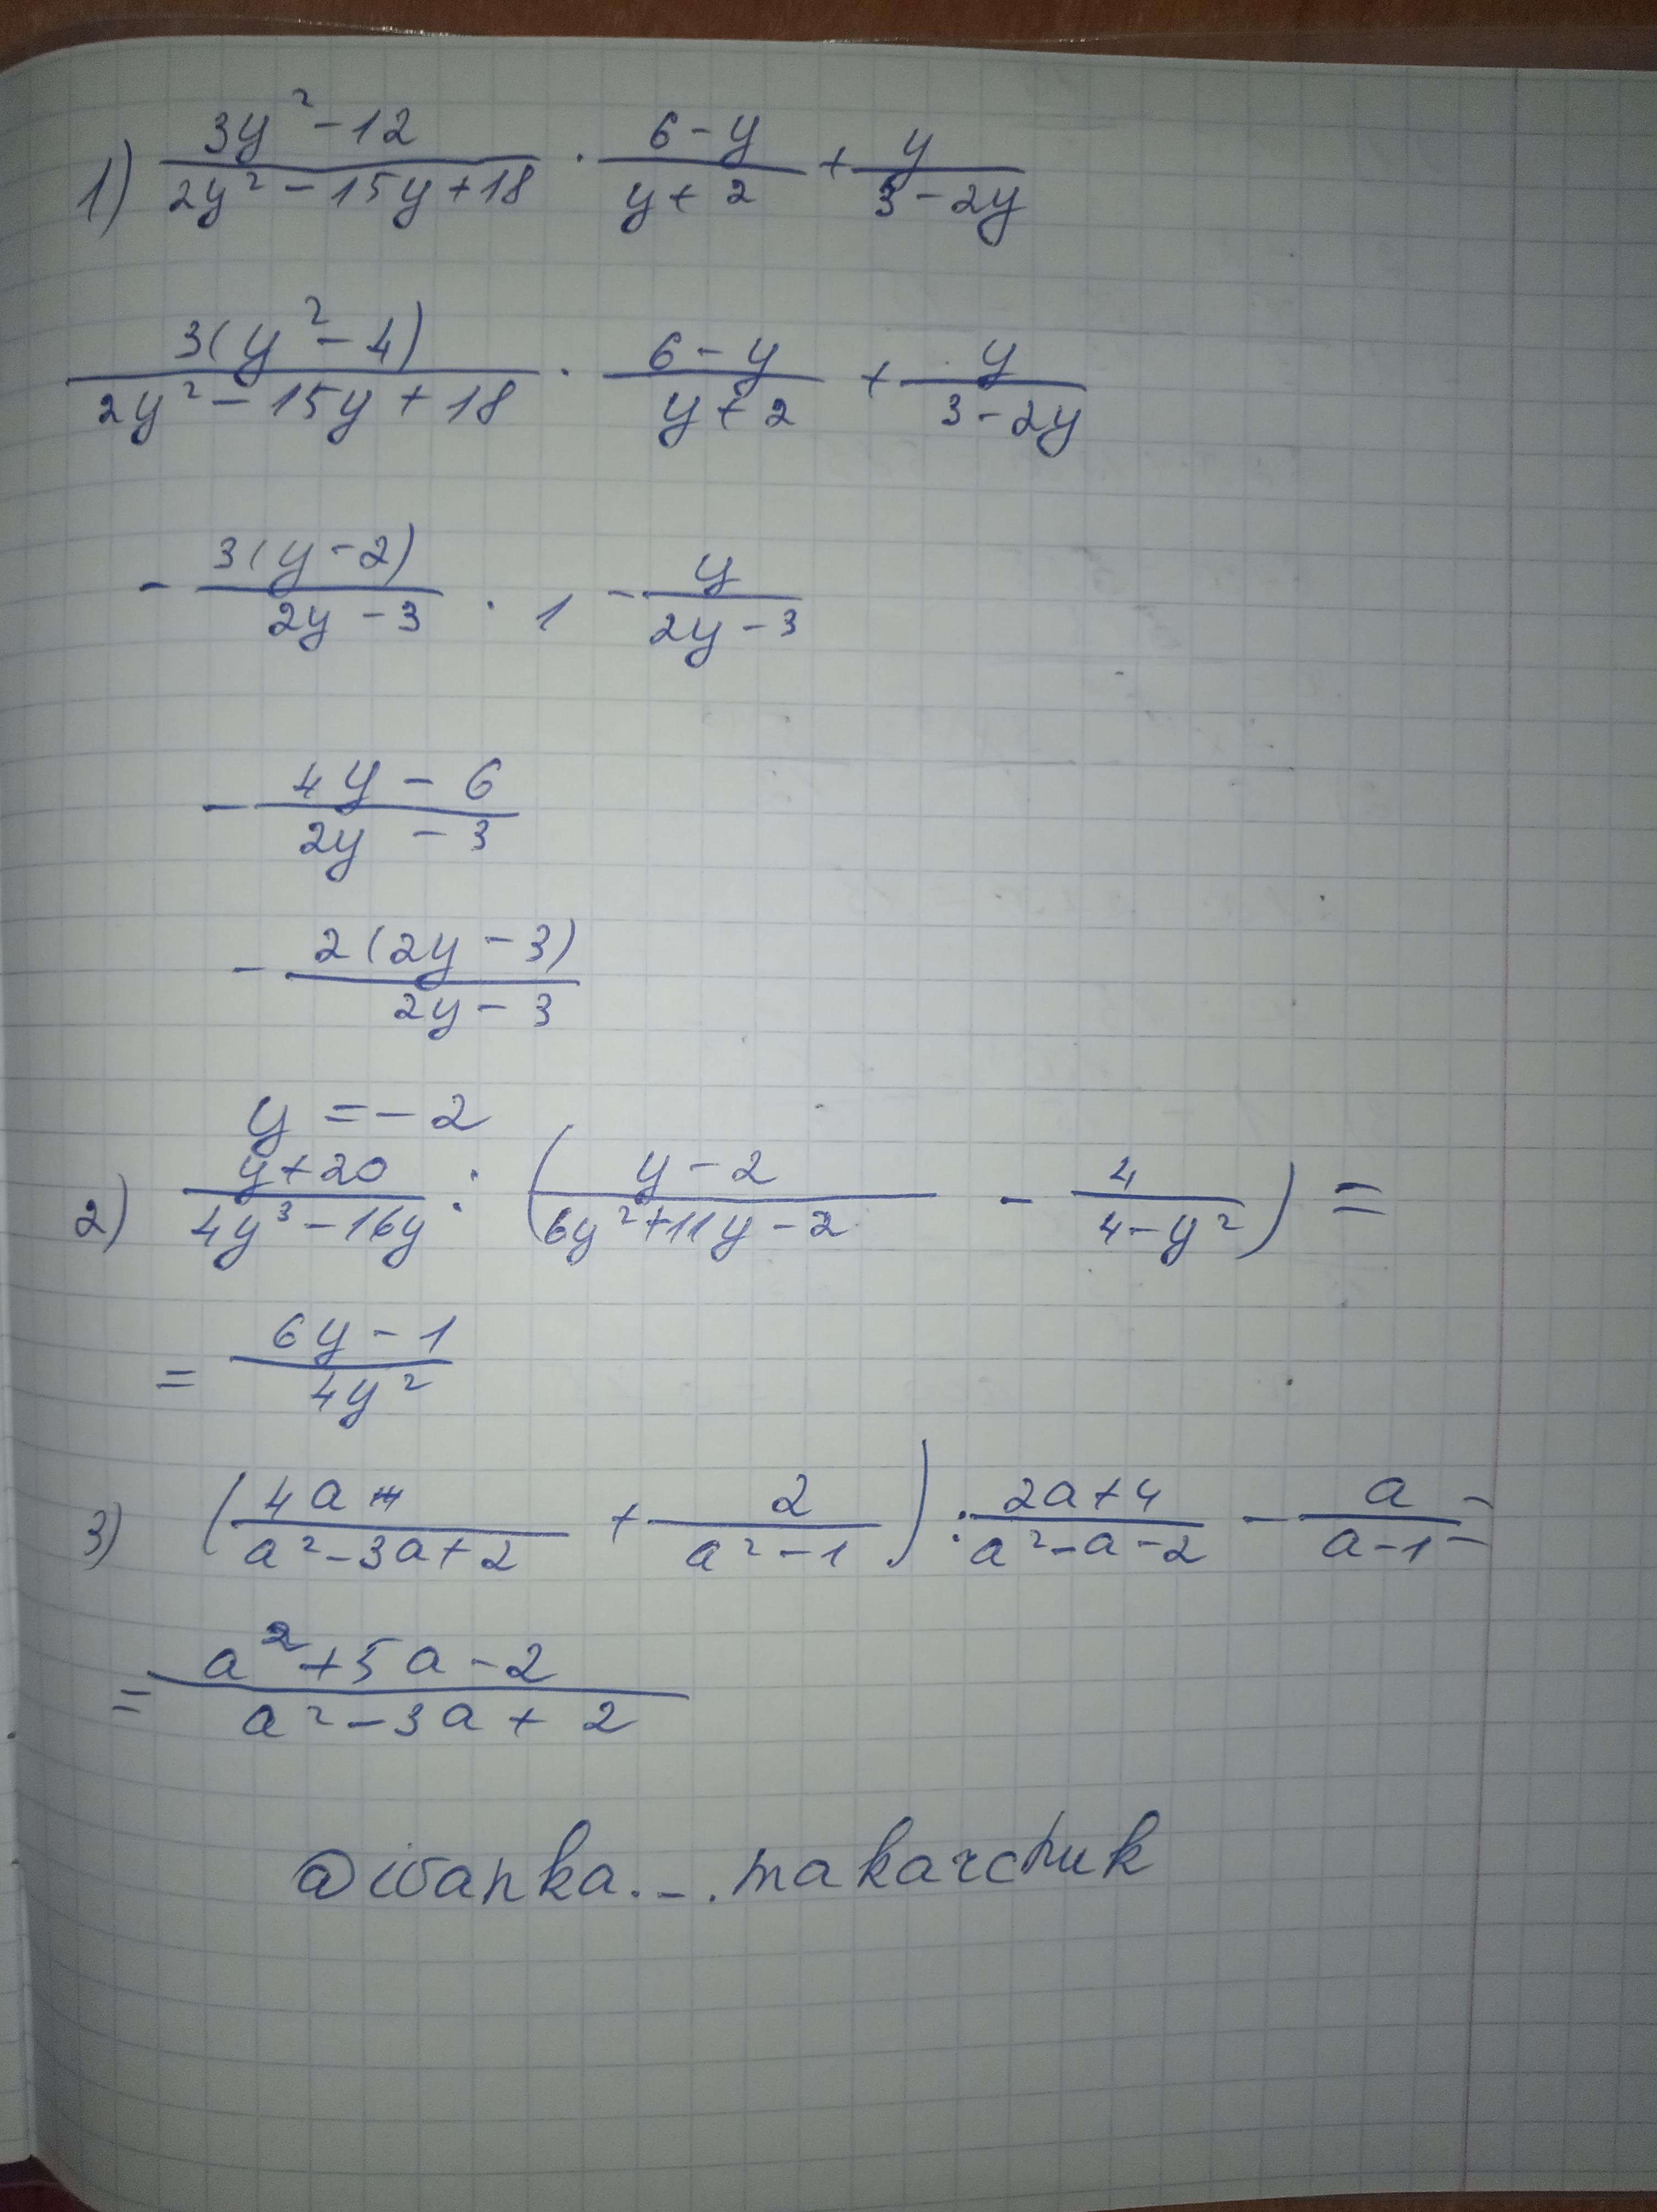 1) (3y² - 12)/(2y² - 15y + 18) · (6 - y)/(y + 2) + y/(3 - 2y)
3(y² - 4)/(2y² - 15y + 18) · (6 - y)/(y + 2) + y/(3 - 2y)
- 3(y - 2)/(2y - 3) · 1 - y/(2y - 3)
- (4y - 6)/(2y - 3)
- 2(2y - 3)/(2y - 3)
y = -2
2) (y + 20)/(4y³ - 16y) : ((y - 2)/(6y² + 11y - 2) - 4/(4 - y²)) =
= (6y - 1)/(4y²)
3) (4a/(a² - 3a + 2) + 2/(a² - 1)) : (2a + 4)/(a² - a - 2) - a/(a - 1) =
= (a² + 5a - 2)/(a² - 3a + 2)
@ivanka._.makarchuk